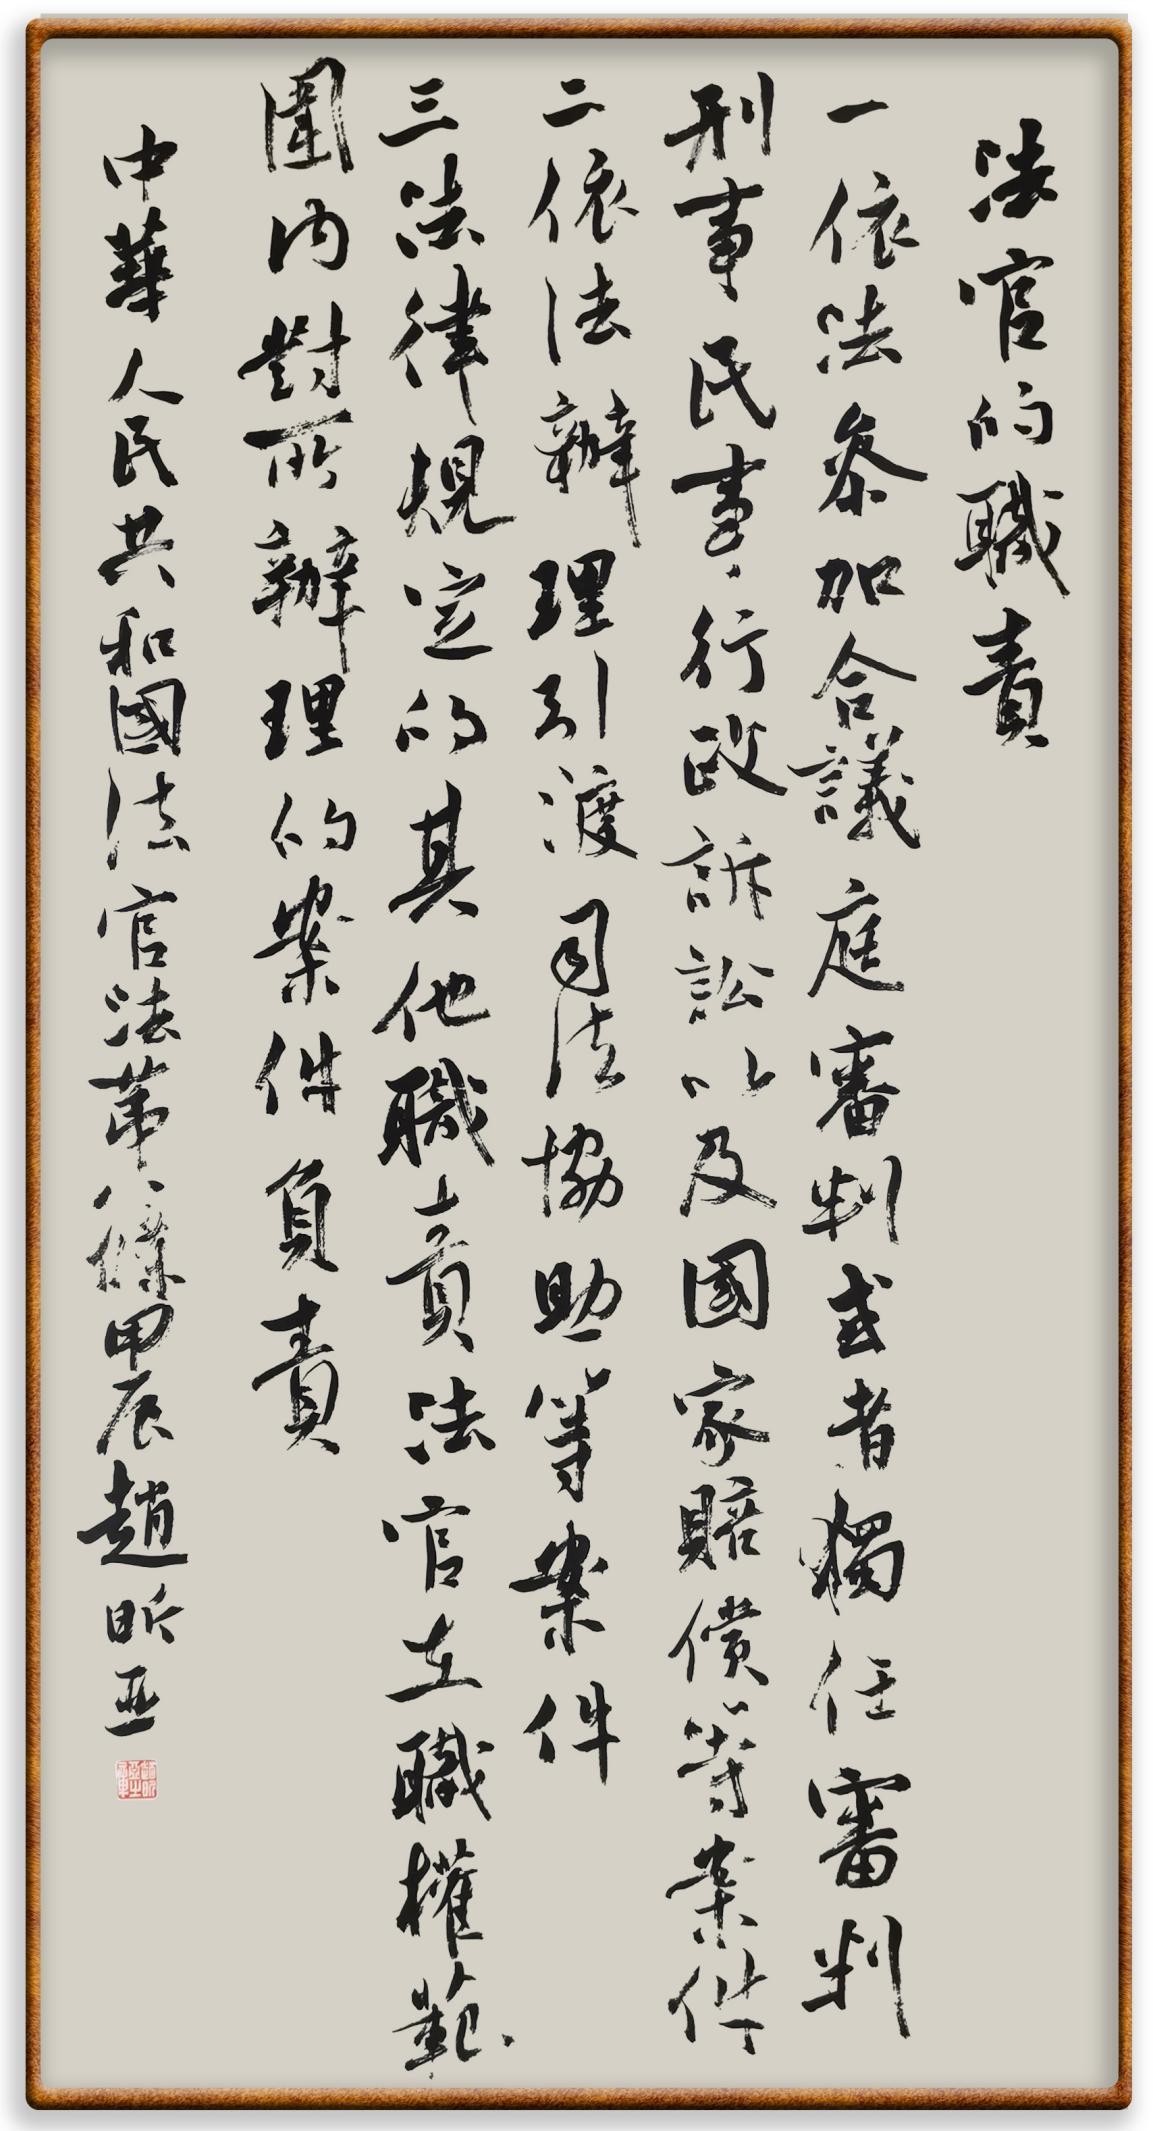 法官的職責
一依法參加合議庭審判或者獨任審判
刑事民事行政訴訟以及國家賠償等案件
二依法辦理引渡司法協助等案件
三法律規定的其他職責法官在職權範
圍内對所辦理的案件負責
中華人民共和國法官法第八條甲辰趙昕亚